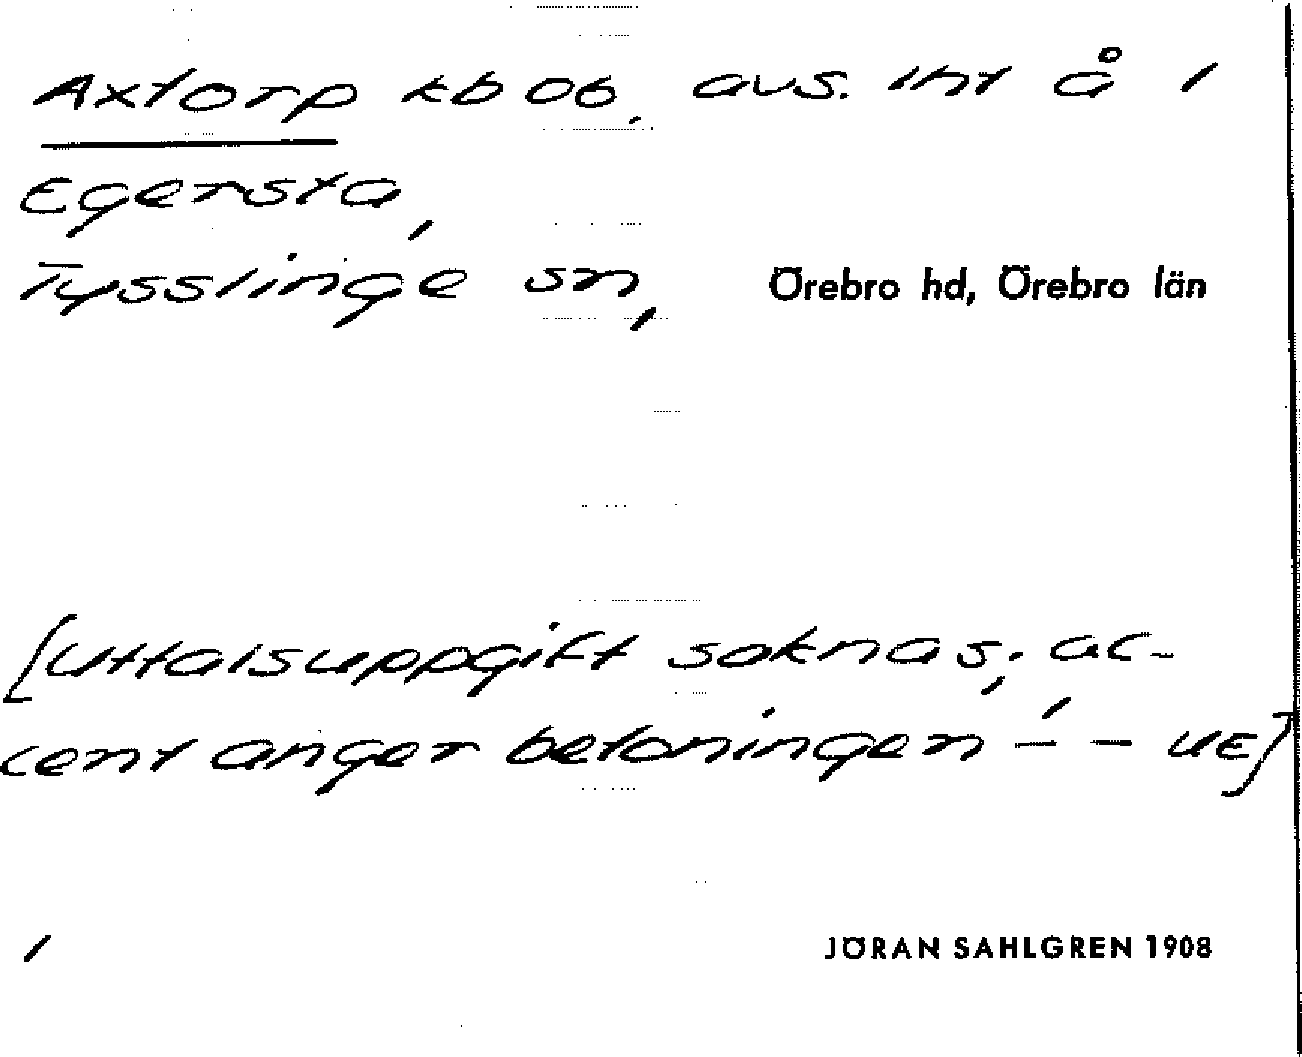 Axtorp kb 06. avs. int å 1
Egersta,
Tysslinge sn, Örebro hd, Örebro län
[Uttalsuppgift saknas; ac-
cent anger betoningen - - UE]
JÖRAN SAHLGREN 1908